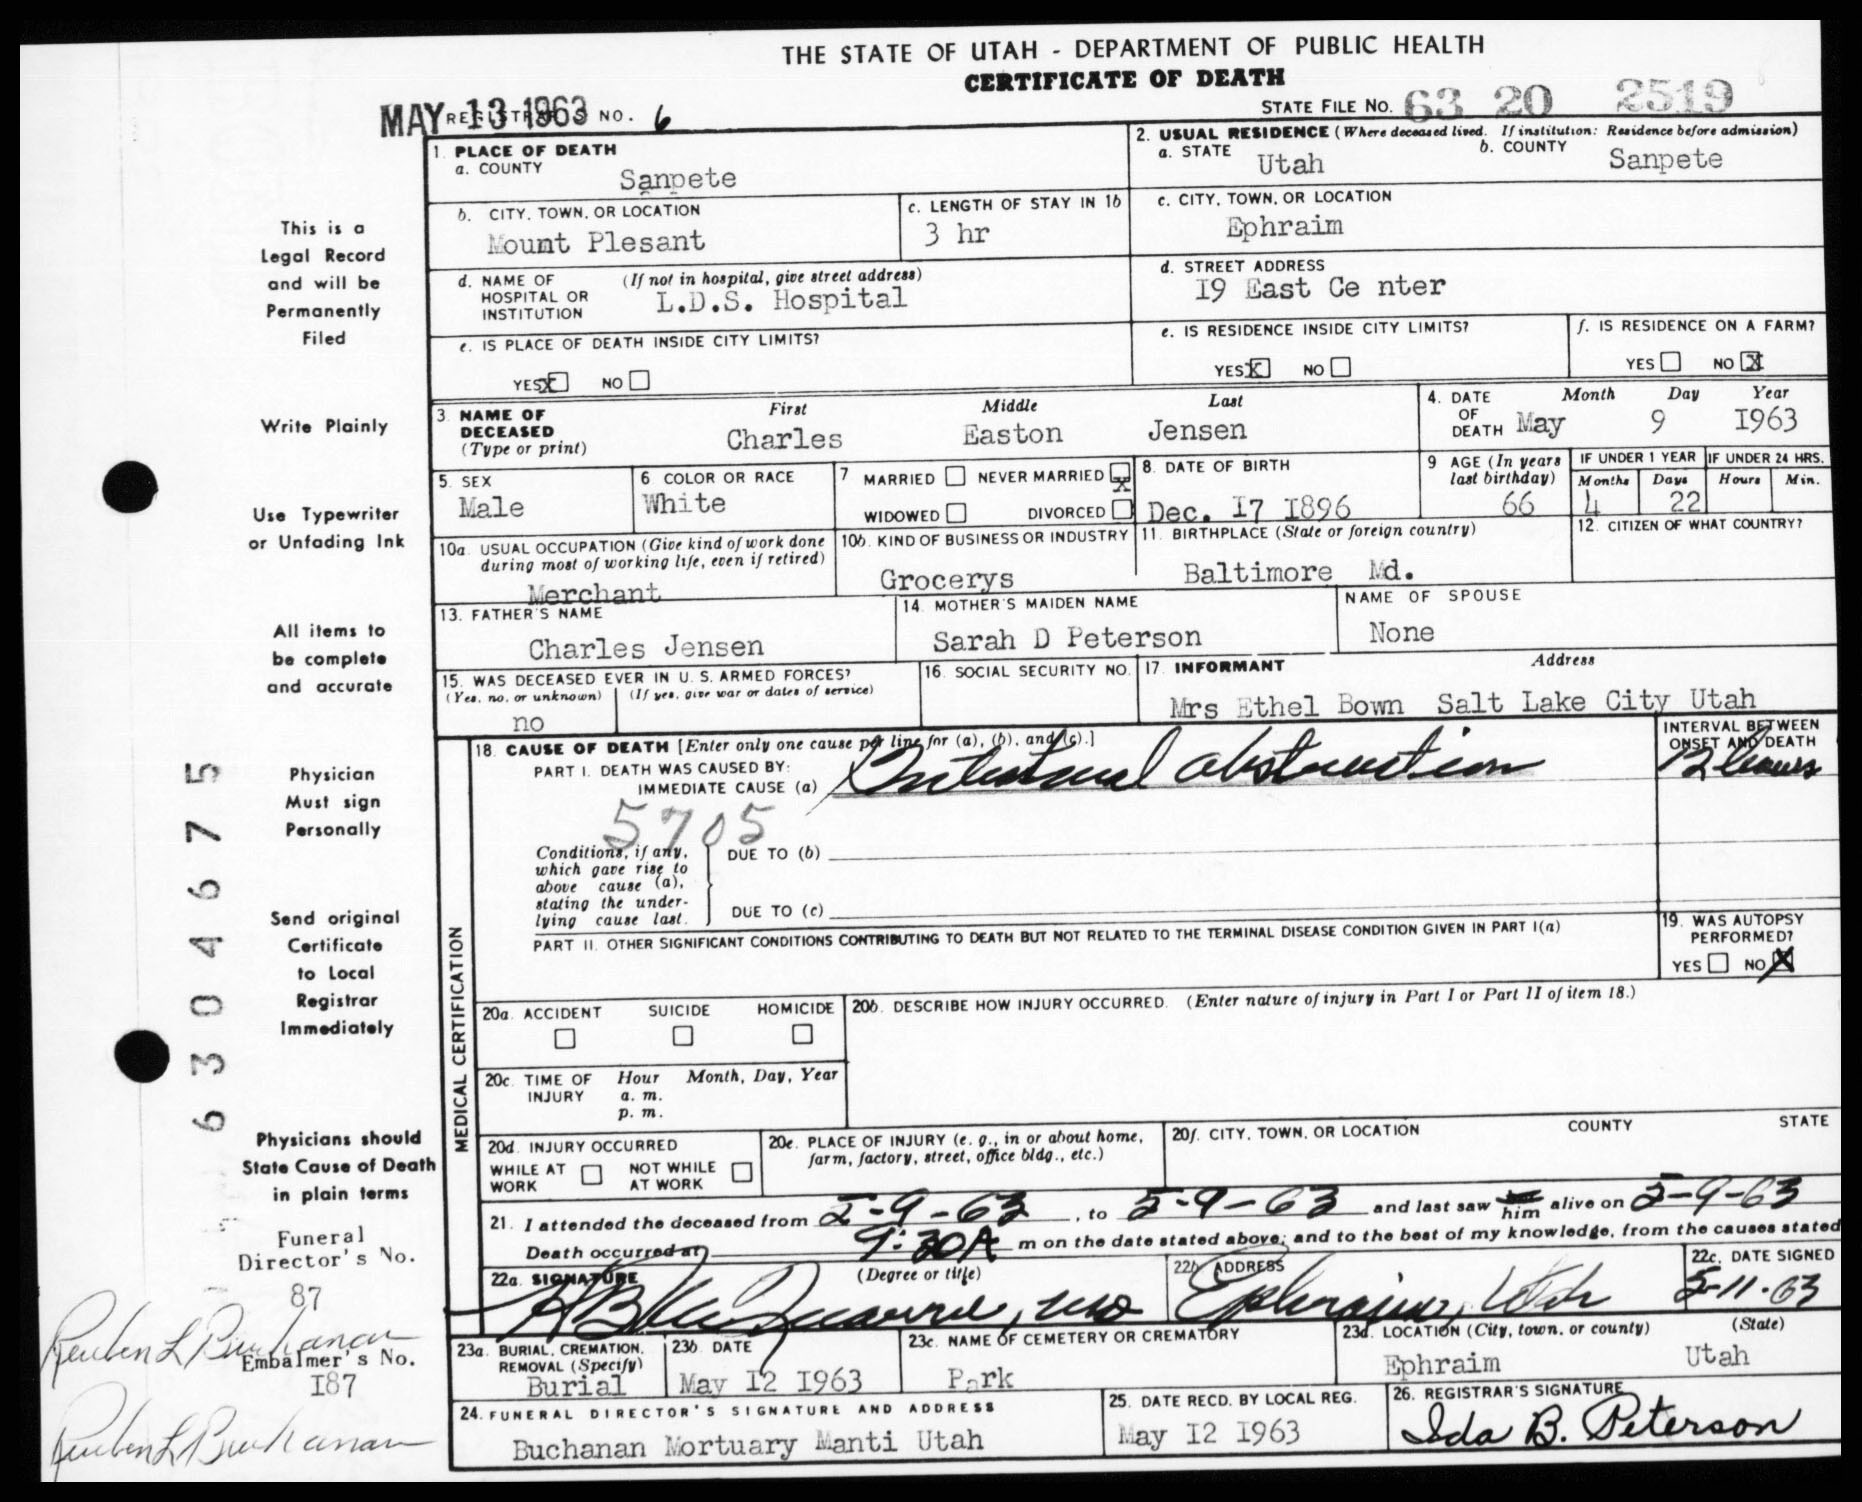 THE STATE OF UTAH - DEPARTMENT OF PUBLIC HEALTH
CERTIFICATE OF DEATH
MAY 13 1963 REGISTRAR'S NO. 6
STATE FILE NO. 63 20 2519
1. PLACE OF DEATH
a. COUNTY Sanpete
2. USUAL RESIDENCE (Where deceased lived. If institution: Residence before admission)
a. STATE Utah b. COUNTY Sanpete
b. CITY, TOWN, OR LOCATION Mount Plesant
c. LENGTH OF STAY IN 1b 3 hr
c. CITY, TOWN, OR LOCATION Ephraim
d. NAME OF HOSPITAL OR INSTITUTION (If not in hospital, give street address) L.D.S. Hospital
d. STREET ADDRESS I9 East Ce nter
e. IS PLACE OF DEATH INSIDE CITY LIMITS?
YES X NO
e. IS RESIDENCE INSIDE CITY LIMITS?
YES X NO
f. IS RESIDENCE ON A FARM?
YES NO X
3. NAME OF DECEASED (Type or print)
First Middle Last
Charles Easton Jensen
4. DATE OF DEATH Month Day Year
May 9 I963
5. SEX Male
6 COLOR OR RACE White
7 MARRIED NEVER MARRIED X
WIDOWED DIVORCED
8. DATE OF BIRTH Dec. I7 I896
9 AGE (In years last birthday) 66
IF UNDER 1 YEAR Months 4 Days 22
IF UNDER 24 HRS. Hours Min.
10a. USUAL OCCUPATION (Give kind of work done during most of working life, even if retired) Merchant
10b. KIND OF BUSINESS OR INDUSTRY Grocerys
11. BIRTHPLACE (State or foreign country) Baltimore Md.
12. CITIZEN OF WHAT COUNTRY?
13. FATHER'S NAME Charles Jensen
14. MOTHER'S MAIDEN NAME Sarah D Peterson
NAME OF SPOUSE None
15. WAS DECEASED EVER IN U.S. ARMED FORCES?
(Yes, no, or unknown) (If yes, give war or dates of service)
no
16. SOCIAL SECURITY NO.
17. INFORMANT Address
Mrs Ethel Bown Salt Lake City Utah
MEDICAL CERTIFICATION
18. CAUSE OF DEATH [Enter only one cause per line for (a), (b), and (c).]
PART I. DEATH WAS CAUSED BY:
IMMEDIATE CAUSE (a) Intestinal abstruction
INTERVAL BETWEEN ONSET AND DEATH
12 hours
5705
Conditions, if any, which gave rise to above cause (a), stating the underlying cause last.
DUE TO (b)
DUE TO (c)
PART II. OTHER SIGNIFICANT CONDITIONS CONTRIBUTING TO DEATH BUT NOT RELATED TO THE TERMINAL DISEASE CONDITION GIVEN IN PART I(a)
19. WAS AUTOPSY PERFORMED?
YES NO X
20a. ACCIDENT SUICIDE HOMICIDE
20b. DESCRIBE HOW INJURY OCCURRED. (Enter nature of injury in Part I or Part II of item 18.)
20c. TIME OF INJURY Hour Month, Day, Year
a. m.
p. m.
20d. INJURY OCCURRED
WHILE AT WORK NOT WHILE AT WORK
20e. PLACE OF INJURY (e. g., in or about home, farm, factory, street, office bldg., etc.)
20f. CITY, TOWN, OR LOCATION COUNTY STATE
21. I attended the deceased from 5-9-63, to 5-9-63 and last saw him alive on 5-9-63
Death occurred at 9:30A m on the date stated above; and to the best of my knowledge, from the causes stated
22a. SIGNATURE (Degree or title)
22b ADDRESS Ephraim, Utah
22c. DATE SIGNED 5-11-63
23a. BURIAL, CREMATION, REMOVAL (Specify) Burial
23b. DATE May I2 I963
23c. NAME OF CEMETERY OR CREMATORY Park
23d. LOCATION (City, town, or county) (State)
Ephraim Utah
24. FUNERAL DIRECTOR'S SIGNATURE AND ADDRESS
Buchanan Mortuary Manti Utah
25. DATE RECD. BY LOCAL REG. May I2 I963
26. REGISTRAR'S SIGNATURE
Ida B. Peterson
This is a
Legal Record
and will be
Permanently
Filed
Write Plainly
Use Typewriter
or Unfading Ink
All items to
be complete
and accurate
Physician
Must sign
Personally
Send original
Certificate
to Local
Registrar
Immediately
Physicians should
State Cause of Death
in plain terms
Funeral
Director's No.
87
Reuben L Buchanan
Embalmer's No.
I87
Reuben L Buchanan
6304675